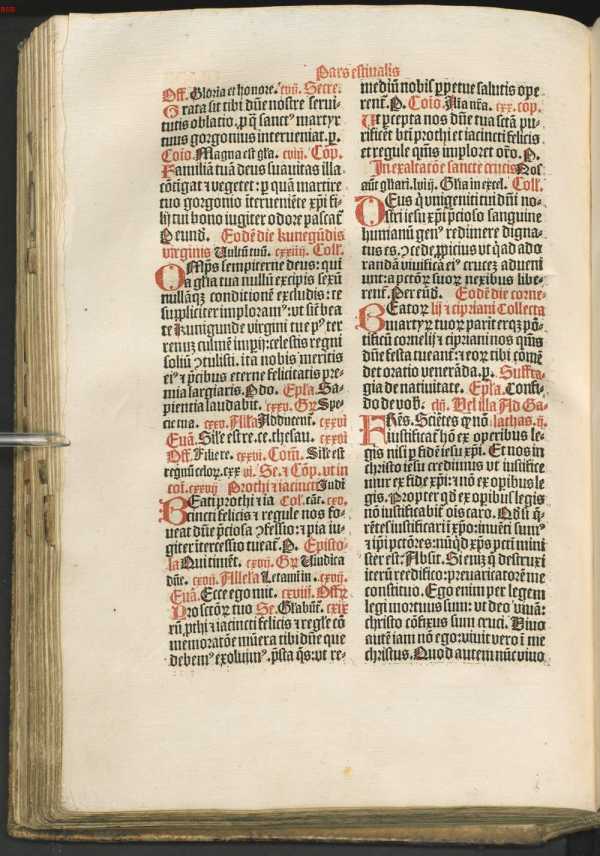 Pars estiualis
Off. Gloria et honore. cviij. Secre.
Grata sit tibi dñe nostre serui-
tutis oblatio. ꝓ q̃ sanctꝰ martyr
tuus gorgonius interueniat. p.
Coĩo. Magna est gĺa. cviij. Cõp.
Familiã tuã deus suauitas illa
cõtigat ⁊ vegetet: ꝑ quã martire
tuo gorgonio ĩterueniẽte xp̃i fi-
lij tui bono iugiter odore pascat̃
P eund. Eodẽ die kunegũdis
virginis Vultũ tuũ. cxxiiij. Colĺ.
OMp̃s sempiterne deus: qui
a gĺia tua nullũ excipis sexũ
nullãq; conditionẽ excludis: te
suppliciter imploramꝰ: vt sic̃ bea
te kunigunde virgini tue pꝰ ter
renuz culmẽ imp̃ij: celestis regni
soliũ ꝯtulisti. ita nobis meritis
eiꝰ ⁊ p̃cibus eterne felicitatis pre-
mia largiaris. P do. Epĺa. Sa-
pientia laudabit. cxxv. Gr̃ Spe-
cie tua. cxxv. Alĺa Adducent̃. cxxvi
Euã. Siĺe est re. ce. thesau. cxxvi
Off. Filie re. cxxvi. Com̃. Siĺe est
regnũ celoꝝ. cxx vi. Se. ⁊ Cõp. vt in
coĩ. cxxvij Prothi ⁊ iacincti Iudi
BEati prothi ⁊ ia Col. cãt. cxv.
cincti felicis ⁊ regule nos fo-
ueat dñe p̃ciosa ꝯfessio: ⁊ pia iu-
giter ĩtercessio tueat̃. P. Episto-
la Qui timẽt. cxvij. Gr̃ Vindica
dñe. cxvij. Alleĺa Letamĩ in. cxvij.
Euã. Ecce ego mit. cxviij. Offr̃
Pro sct̃oꝝ tuo Se. Gĺabũt̃. cxix
rũ ꝓthi ⁊ iacincti felicis ⁊ regĺe cõ
memoratõe mũera tibi dñe que
debemꝰ exoluimꝰ. p̃sta q̃s: vt re-
mediũ nobis ꝑpetue salutis ope
rent̃. P. Coĩo. Aĩa nr̃a. cxx. cõp.
Vt ꝑcepta nos dñe tua sct̃a pu-
rificẽt bt̃i prothi et iacincti felicis
et regule qm̃s imploret or̃o. P.
In exaltatõe sancte crucis Nos
aũt gĺiari. lviij. Gĺia in excel. Colĺ.
DEus q̃ vnigeniti tui dñi no-
stri iesu xp̃i p̃cioso sanguine
humanũ genꝰ redimere digna-
tus es, ꝯcede ꝓpicius vt q̃ ad ado
randã viuificã eiꝰ crucez adueni
unt: a pctõꝝ suoꝝ nexibus libe-
rent̃. Per eũd. Eodẽ die corne-
BEatoꝝ lij ⁊ cipriani Collecta
martyꝝ tuoꝝ pariterq; põ-
tificũ cornelij ⁊ cipriani nos qm̃s
dñe festa tueant̃: ⁊ eoꝝ tibi cõmẽ
det oratio venerãda. p. Suffra-
gia de natiuitate. Epĺa. Confi-
do de vob̃. clij. Vel illa Ad Ga-
FRẽs. Sciẽtes qꝛ nõ lathas. ij.
iustificat̃ hõ ex operibus le-
gis nisi ꝑ fidẽ iesu xp̃i. Et nos in
christo iesu credimus vt iustifice
mur ex fide xp̃i: ⁊ nõ ex opib̃us le
gis. Propter qd̃ ex opibus legis
nõ iustificabit̃ oĩs caro. Qd̃ si q̃-
rẽtes iustificari ĩ xp̃o: inuẽti sumꝰ
⁊ ip̃i pctõres: nũqd̃ xp̃s pcti̇ mini
ster est: Absit. Si eniz q̃ destruxi
iterũ reedifico: preuaricatorẽ me
constituo. Ego enim per legem
legi mortuus sum: vt deo viuã:
christo cõfixus sum cruci. Viuo
autẽ iam nõ ego: viuit vero ĩ me
christus. Quod autem nũc viuo